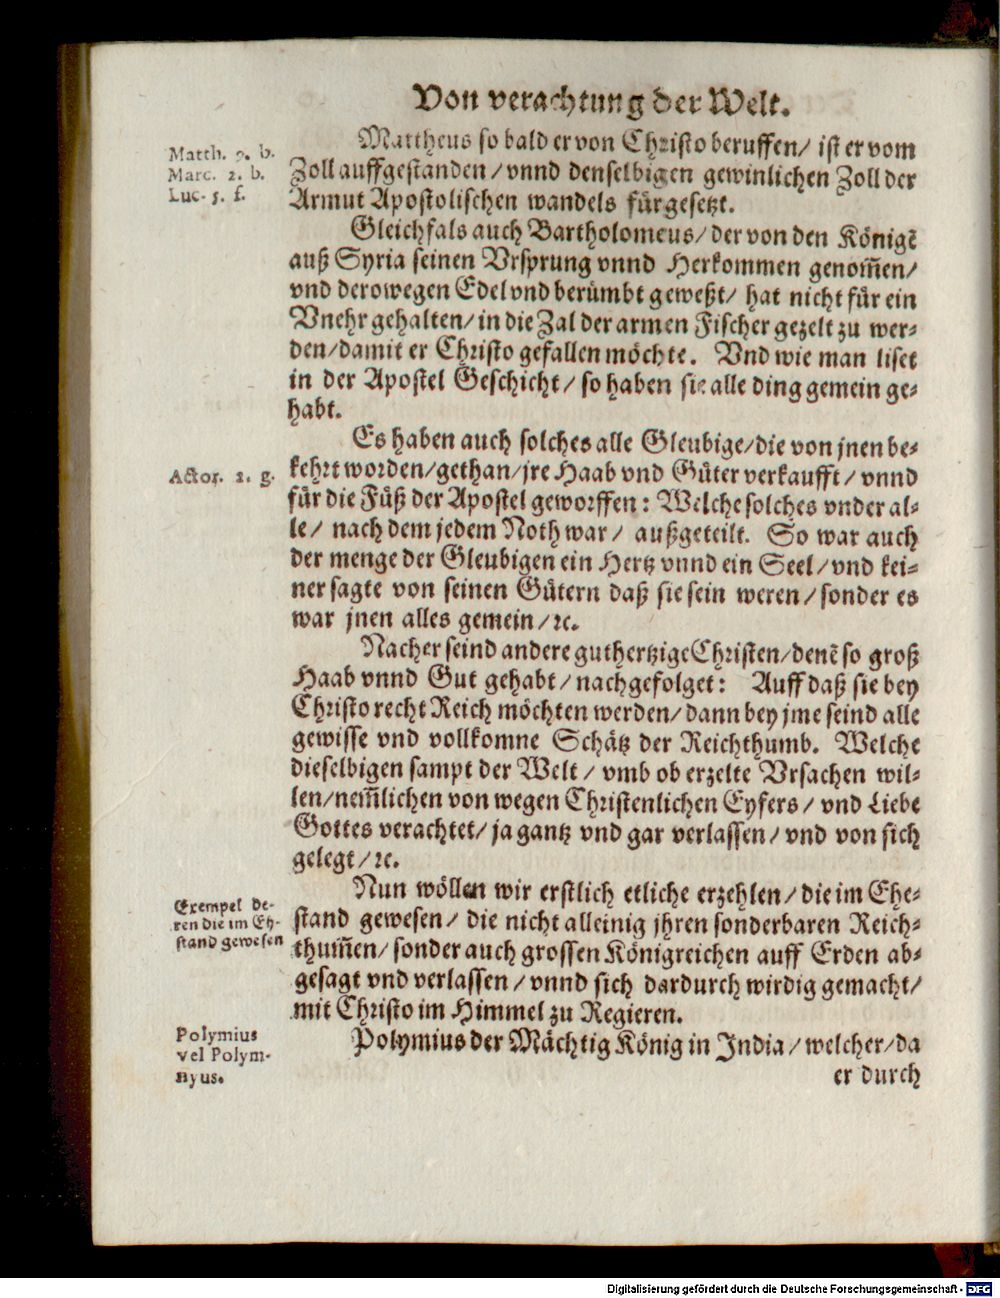 Von verachtung der Welt.
Matth. 9. b.
Marc. 2. b.
Luc. 5. f.
Mattheus so bald er von Christo beruffen/ ist er vom
Zoll auffgestanden/ vnnd denselbigen gewinlichen Zoll der
Armut Apostolischen wandels fürgesetzt.
Gleichfals auch Bartholomeus/ der von den Königẽ
auß Syria seinen Vrsprung vnnd Herkommen genom̃en/
vnd derowegen Edel vnd berümbt geweßt/ hat nicht für ein
Vnehr gehalten/ in die Zal der armen Fischer gezelt zu wer-
den/ damit er Christo gefallen möchte. Vnd wie man liset
in der Apostel Geschicht/ so haben sie alle ding gemein ge-
habt.
Actor. 2. g.
Es haben auch solches alle Gleubige/ die von jnen be-
kehrt worden/ gethan/ jre Haab vnd Güter verkaufft/ vnnd
für die Füß der Apostel geworffen: Welche solches vnder al-
le/ nach dem jedem Noth war/ außgeteilt. So war auch
der menge der Gleubigen ein Hertz vnnd ein Seel/ vnd kei-
ner sagte von seinen Gütern daß sie sein weren/ sonder es
war jnen alles gemein/ ꝛc.
Nacher seind andere guthertzige Christen/ denẽ so groß
Haab vnnd Gut gehabt/ nachgefolget: Auff daß sie bey
Christo recht Reich möchten werden/ dann bey jme seind alle
gewisse vnd vollkomne Schätz der Reichthumb. Welche
dieselbigen sampt der Welt/ vmb ob erzelte Vrsachen wil-
len/ nem̃lichen von wegen Christenlichen Eyfers/ vnd Liebe
Gottes verachtet/ ja gantz vnd gar verlassen/ vnd von sich
gelegt/ ꝛc.
Exempel de-
ren die im Eh-
stand gewesen
Nun wöllen wir erstlich etliche erzehlen/ die im Ehe-
stand gewesen/ die nicht alleinig jhren sonderbaren Reich-
thum̃en/ sonder auch grossen Königreichen auff Erden ab-
gesagt vnd verlassen/ vnnd sich dardurch wirdig gemacht/
mit Christo im Himmel zu Regieren.
Polymius
vel Polym-
nyus.
Polymius der Mächtig König in India/ welcher/ da
er durch
Digitalisierung gefördert durch die Deutsche Forschungsgemeinschaft - DFG